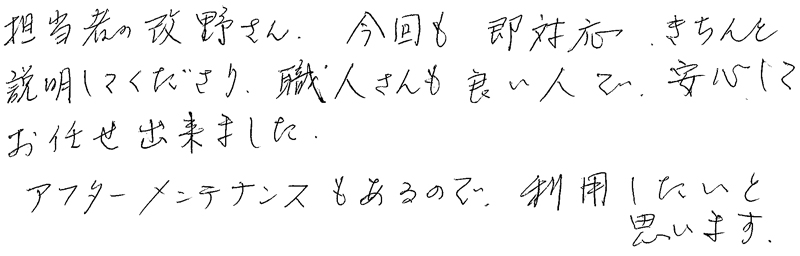 担当者の改野さん. 今回も 即対応、きちんと
説明してくださり、職人さんも良い人で、安心して
お任せ出来ました.
アフターメンテナンスもあるので、利用したいと
思います.